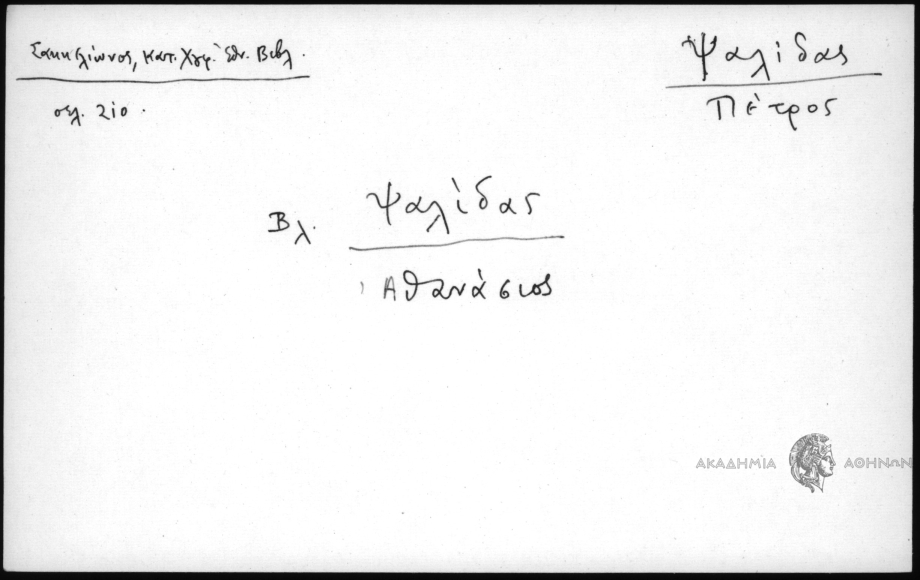 Σακκελίωνος, Κατ. Χγρ. Ἐθν. Βιβλ.
σελ. 210.
Ψαλίδας
Πέτρος
Βλ. Ψαλίδας
Ἀθανάσιος
ΑΚΑΔΗΜΙΑ ΑΘΗΝΩΝ